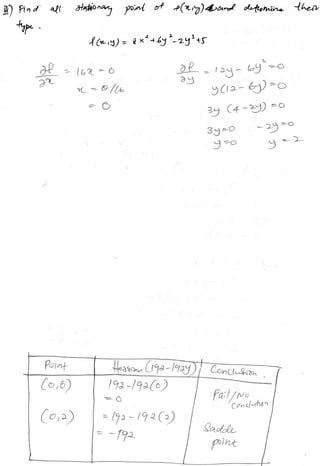 Q) Find all stationary point of f(x,y) and determine their
type.
f(x,y) = 8x²+6y²-2y³+5
∂f/∂x = 16x = 0
x = 0/16
= 0
∂f/∂y = 12y - 6y² = 0
y(12-6y) = 0
3y (4-2y) = 0
3y=0 -2y=0
y=0 y = 2
Point Hessian (192-192y) Conclusion.
(0,0) 192-192(0) Fail/No
= 0 conclusion
(0,2) = 192-192(2) Saddle
= -192 point